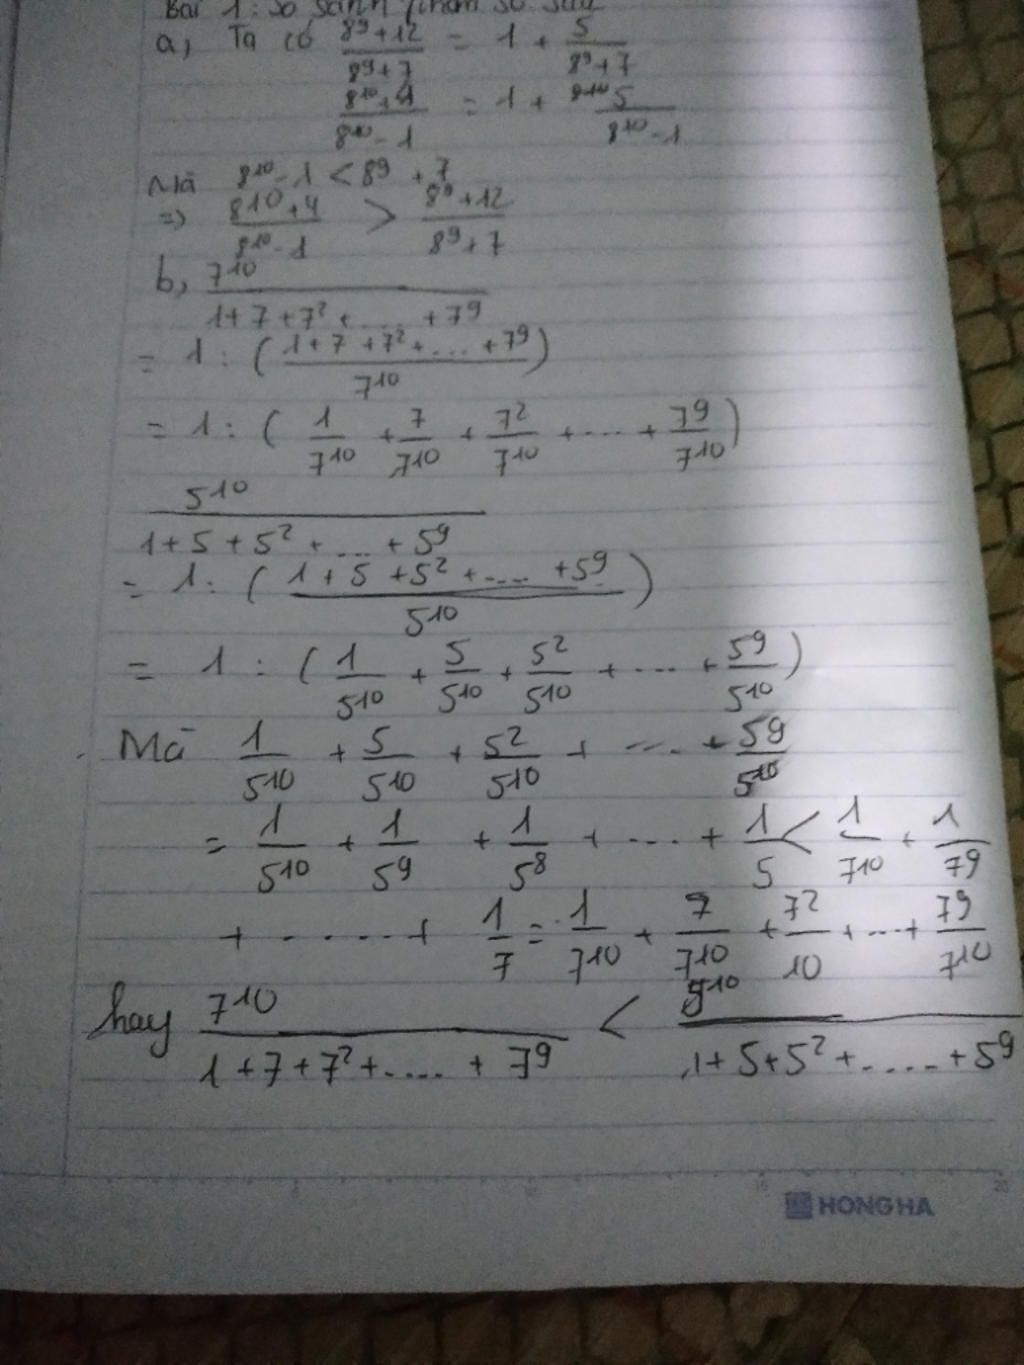 Bài 1: So sánh phân số sau
a, Ta có \frac{8^9+12}{8^9+7} = 1 + \frac{5}{8^9+7}
\frac{8^{10}+4}{8^{10}-1} = 1 + \frac{5}{8^{10}-1}
Mà 8^{10}-1 < 8^9+7
=> \frac{8^{10}+4}{8^{10}-1} > \frac{8^9+12}{8^9+7}
b, \frac{7^{10}}{1+7+7^2+....+7^9}
= 1 : (\frac{1+7+7^2+...+7^9}{7^{10}})
= 1 : (\frac{1}{7^{10}} + \frac{7}{7^{10}} + \frac{7^2}{7^{10}} + ... + \frac{7^9}{7^{10}})
\frac{5^{10}}{1+5+5^2+...+5^9}
= 1 : (\frac{1+5+5^2+....+5^9}{5^{10}})
= 1 : (\frac{1}{5^{10}} + \frac{5}{5^{10}} + \frac{5^2}{5^{10}} + ... + \frac{5^9}{5^{10}})
Mà \frac{1}{5^{10}} + \frac{5}{5^{10}} + \frac{5^2}{5^{10}} + .... + \frac{5^9}{5^{10}}
= \frac{1}{5^{10}} + \frac{1}{5^9} + \frac{1}{5^8} + .... + \frac{1}{5} < \frac{1}{7^{10}} + \frac{1}{7^9}
+ ...... + \frac{1}{7} = \frac{1}{7^{10}} + \frac{7}{7^{10}} + \frac{7^2}{10} + ... + \frac{7^9}{7^{10}}
hay \frac{7^{10}}{1+7+7^2+.....+7^9} < \frac{5^{10}}{1+5+5^2+.....+5^9}
HONG HA